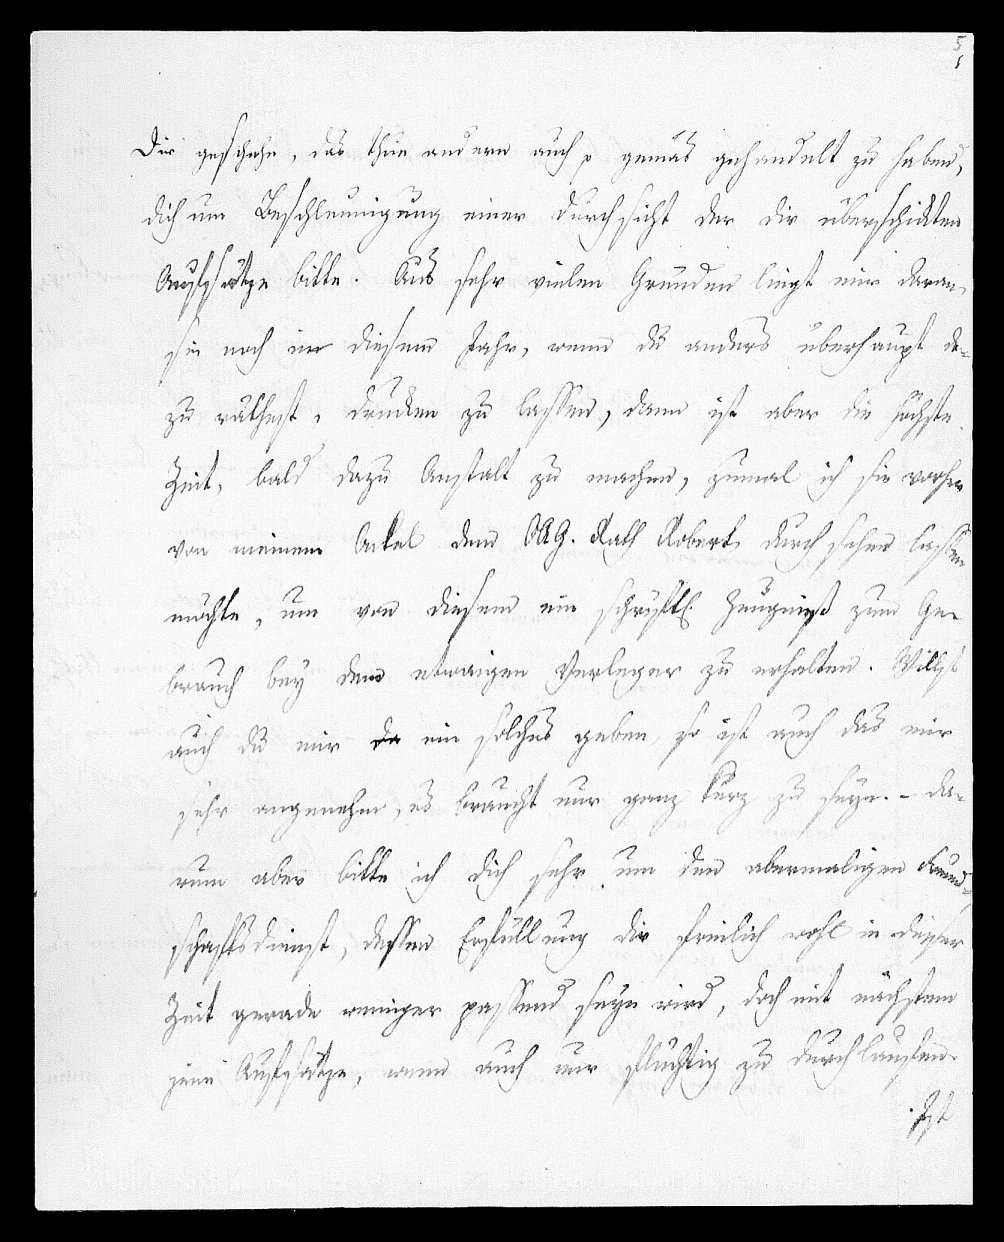 5
dir geschehe, das thue andern auch p gemäs gehandelt zu haben,
dich um Beschleunigung einer Durchsicht der dir überschickten
Aufsätze bitte. Aus sehr vielen Gründen liegt mir daran,
sie noch in diesem Jahr, wenn du anders überhaupt da-
zu räthest, drucken zu lassen, dann ist aber die höchste
Zeit, bald dazu Anstalt zu machen, zumal ich sie vorher
von meinem Onkel dem OAG. Rath Robert durchsehen lassen
möchte, um von diesem ein schriftl. Zeugniß zum Ge-
brauch bey dem etwaigen Verleger zu erhalten. Willst
auch du mir ein solches geben, so ist auch das mir
sehr angenehm, es braucht nur ganz kurz zu seyn. – Da-
rum aber bitte ich dich sehr um den abermaligen Freund-
schaftsdienst, dessen Erfüllung dir freilich wohl in dieser
Zeit gerade weniger passend seyn wird, doch mit nächstem
jene Aufsätze, wenn auch nur flüchtig zu durchlaufen.
Ist